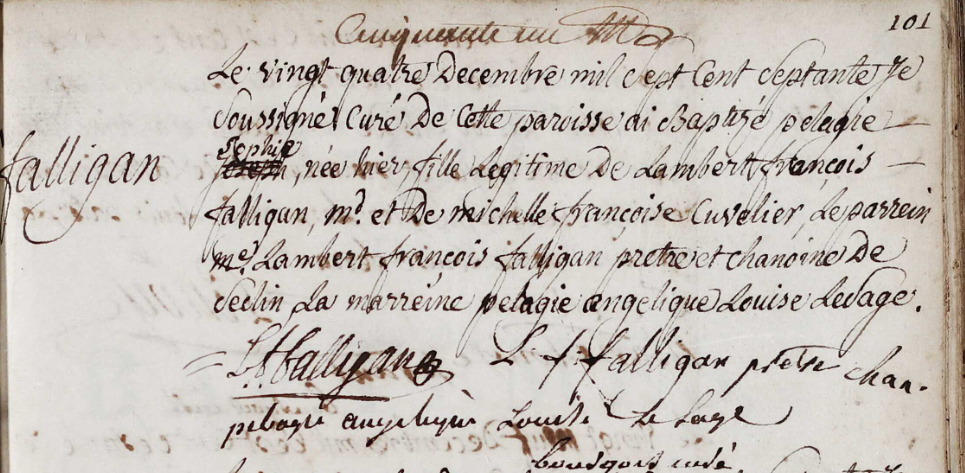 101
Cinquante un
Le vingt quatre Decembre mil sept Cent septante Je
soussigné Curé De Cette paroisse ai Baptizé pelagie
sophie
falligan
joseph, née hier, fille Legitime De Lambert françois
falligan, md. et De michelle françoise Cuvelier, Le parrein
me. Lambert françois falligan pretre et chanoine De
seclin La marreine pelagie angelique Louise Lesage.
L f falligan L. f. falligan pretre chan.
pelagie angelique Louise Le sage
bourgois